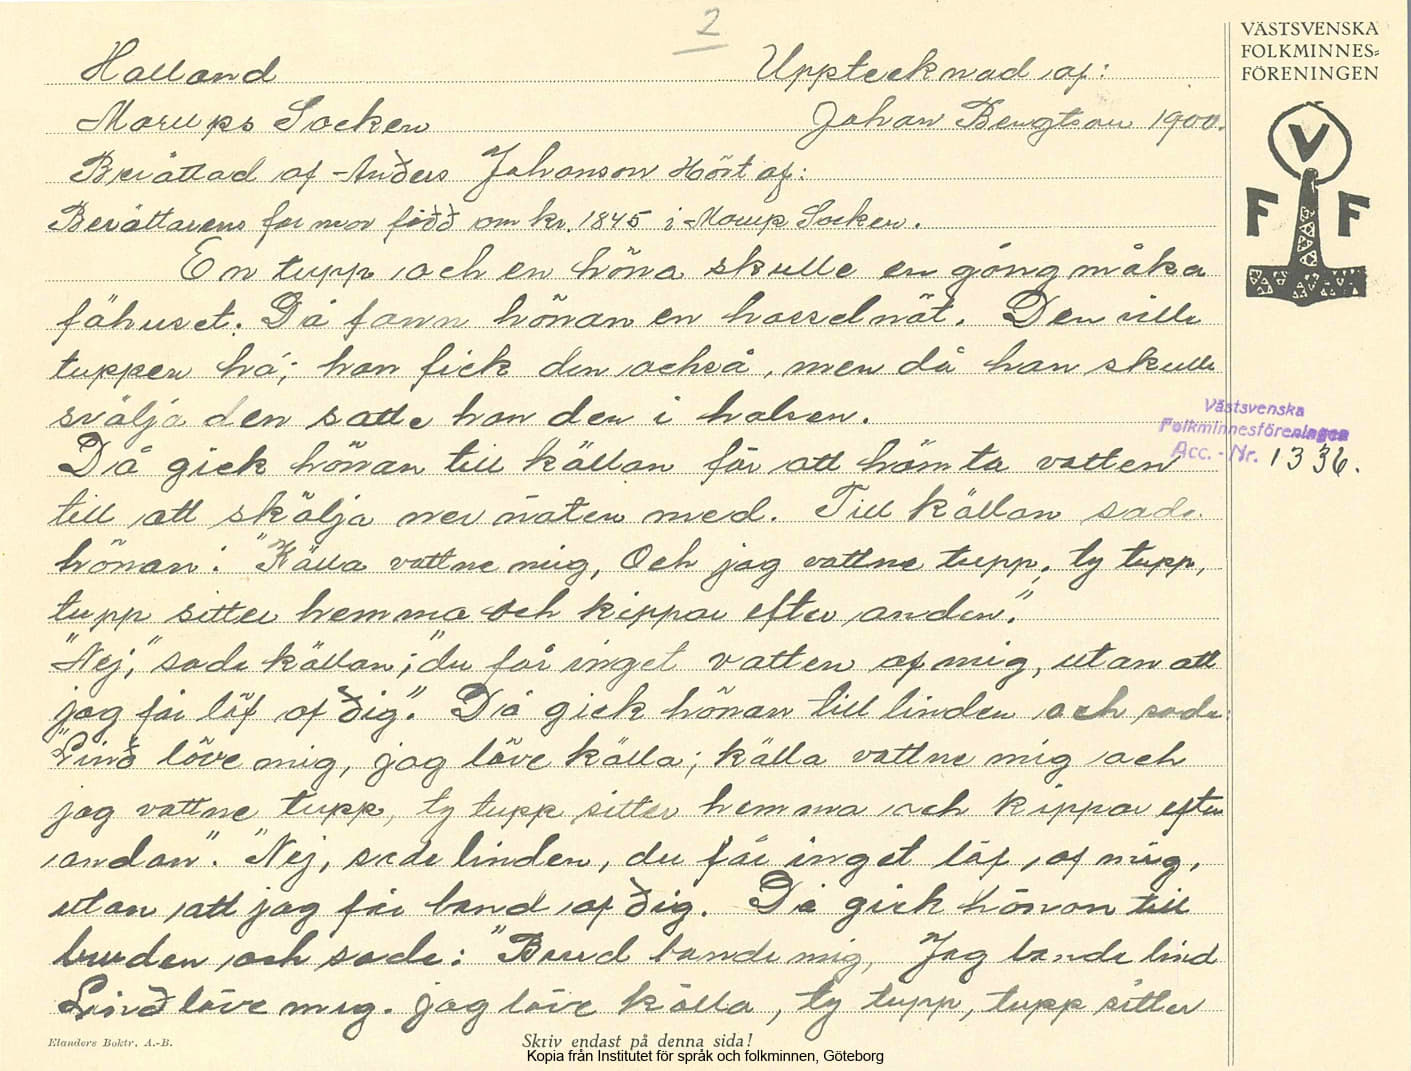 2
VÄSTSVENSKA
FOLKMINNES=
FÖRENINGEN
V
F F
Halland Upptecknad af:
Morups Socken Johan Bengtson 1900.
Berättad af Anders Johanson Hört af:
Berättarens far mor född om kr. 1845 i Morup Socken.
En tupp och en höna skulle en gång måka
fähuset. Då fann hönan en hasselnöt. Den ville
tuppen há; han fick den också, men då han skulle
svälja den satte han den i halsen.
Då gick hönan till källan för att hämta vatten
till att skölja ner nöten med. Till källan sade
hönan: "Källa vattne mig, Och jag vattne tupp, ty tupp,
tupp sitter hemma och kippar efter andan".
"Nej," sade källan; "du får inget vatten af mig, utan att
jag får löf af dig". Då gick hönan till linden och sade:
"Lind löve mig, jag löve källa; källa vattne mig och
jag vattne tupp, ty tupp sitter hemma och kippar efter
andan". "Nej, sade linden, du får inget löf af mig,
utan att jag får band af dig. Då gick hönan till
bruden och sade: "Brud bande mig, Jag bande lind
Lind löve mig. jag löve källa, ty tupp, tupp sitter
Västsvenska
Folkminnesföreningen
Acc. - Nr. 1336.
Elanders Boktr. A.-B.
Skriv endast på denna sida!
Kopia från Institutet för språk och folkminnen, Göteborg